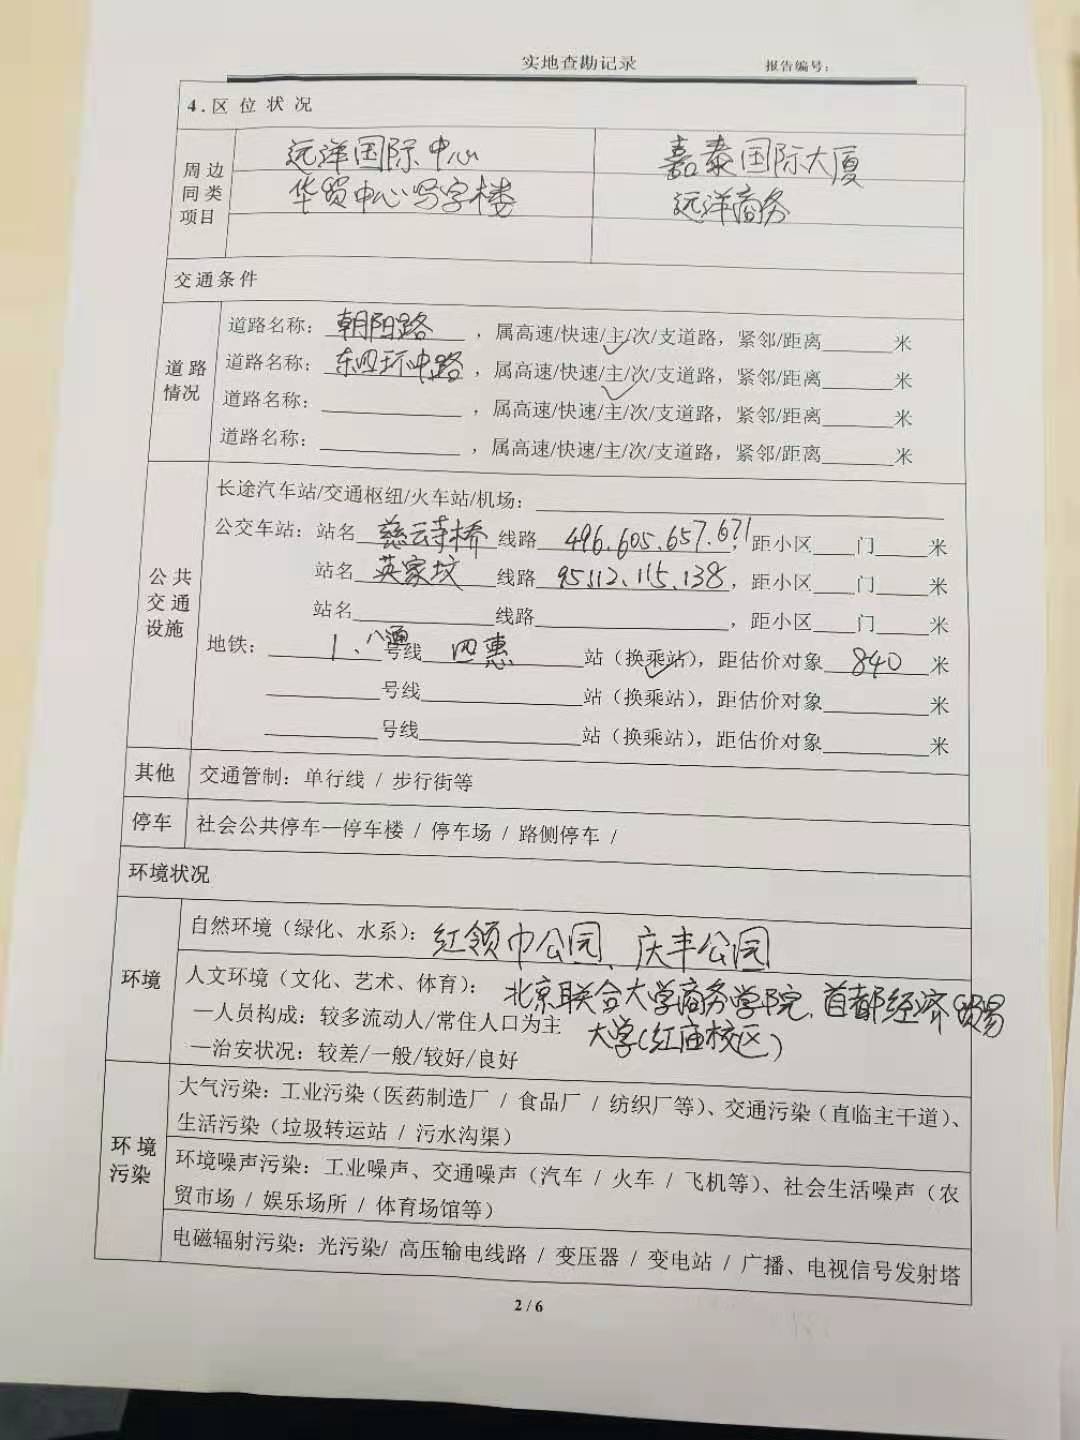 实地查勘记录 报告编号：
4.区位状况
周边同类项目 远洋国际中心 嘉泰国际大厦
华贸中心写字楼 远洋商务
交通条件
道路情况 道路名称：朝阳路，属高速/快速/主/次/支道路，紧邻/距离______米
道路名称：东四环中路，属高速/快速/主/次/支道路，紧邻/距离______米
道路名称：______，属高速/快速/主/次/支道路，紧邻/距离______米
道路名称：______，属高速/快速/主/次/支道路，紧邻/距离______米
公共交通设施 长途汽车站/交通枢纽/火车站/机场：______
公交车站：站名 慈云寺桥 线路 496.605.657.671，距小区____门____米
站名 英家坟 线路 95.112.115.138，距小区____门____米
站名______线路______，距小区____门____米
地铁：1、八通 号线 四惠 站（换乘站），距估价对象 840 米
______号线______站（换乘站），距估价对象______米
______号线______站（换乘站），距估价对象______米
其他 交通管制：单行线 / 步行街等
停车 社会公共停车—停车楼 / 停车场 / 路侧停车 /
环境状况
环境 自然环境（绿化、水系）：红领巾公园、庆丰公园
人文环境（文化、艺术、体育）：北京联合大学商务学院、首都经济贸易
—人员构成：较多流动人/常住人口为主 大学（红庙校区）
—治安状况：较差/一般/较好/良好
环境污染 大气污染：工业污染（医药制造厂 / 食品厂 / 纺织厂等）、交通污染（直临主干道）、
生活污染（垃圾转运站 / 污水沟渠）
环境噪声污染：工业噪声、交通噪声（汽车 / 火车 / 飞机等）、社会生活噪声（农
贸市场 / 娱乐场所 / 体育场馆等）
电磁辐射污染：光污染/ 高压输电线路 / 变压器 / 变电站 / 广播、电视信号发射塔
2 / 6